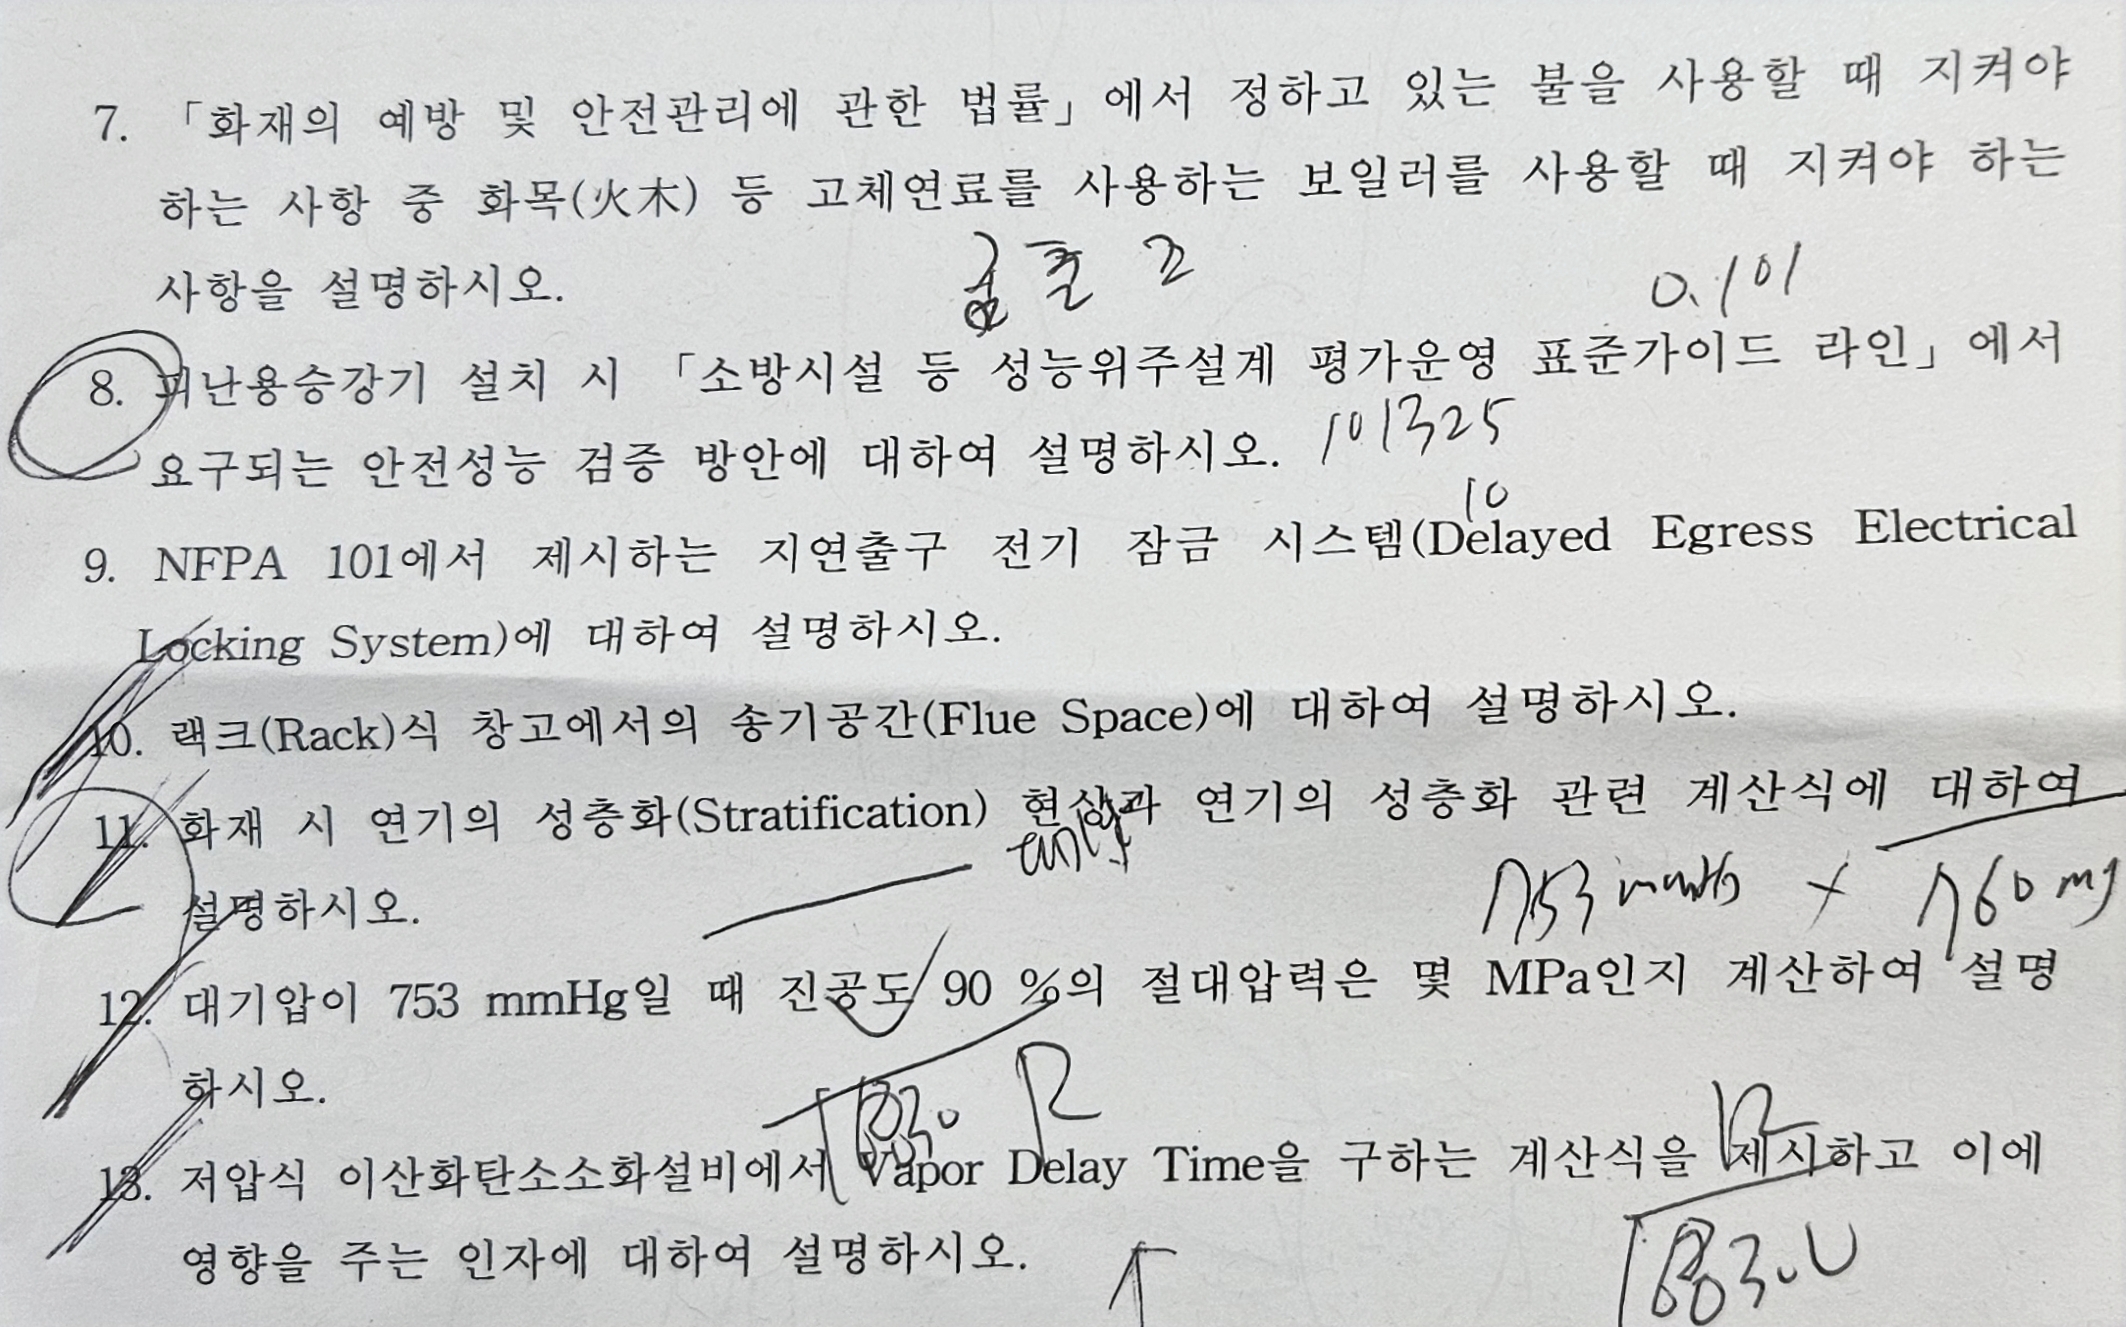 7. 「화재의 예방 및 안전관리에 관한 법률」에서 정하고 있는 불을 사용할 때 지켜야
하는 사항 중 화목(火木) 등 고체연료를 사용하는 보일러를 사용할 때 지켜야 하는
사항을 설명하시오.
0.101
8. 피난용승강기 설치 시 「소방시설 등 성능위주설계 평가운영 표준가이드 라인」에서
요구되는 안전성능 검증 방안에 대하여 설명하시오. 101325
10
9. NFPA 101에서 제시하는 지연출구 전기 잠금 시스템(Delayed Egress Electrical
Locking System)에 대하여 설명하시오.
10. 랙크(Rack)식 창고에서의 송기공간(Flue Space)에 대하여 설명하시오.
11. 화재 시 연기의 성층화(Stratification) 현상과 연기의 성층화 관련 계산식에 대하여
설명하시오.
753 mmHg × 760 mg
12. 대기압이 753 mmHg일 때 진공도 90 %의 절대압력은 몇 MPa인지 계산하여 설명
하시오.
13. 저압식 이산화탄소소화설비에서 Vapor Delay Time을 구하는 계산식을 제시하고 이에
영향을 주는 인자에 대하여 설명하시오.